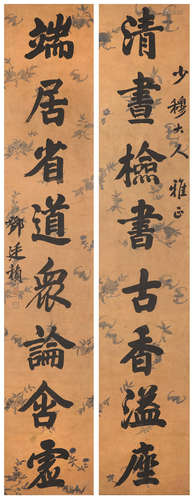 清晝檢書古香溢座
少穆大人雅正
端居省道眾論含虛
鄧廷楨